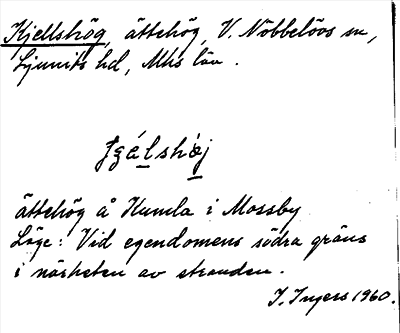 Kjellshög, ättehög, V. Nöbbelövs sn,
Ljunits hd, Mhs län.
ättehög å Humla i Mossby
Läge: Vid egendomens södra gräns
i närheten av stranden.
I. Ingers 1960.